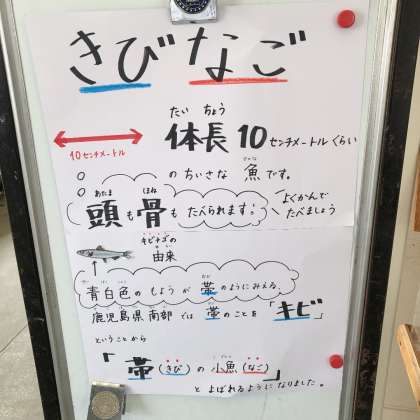 きびなご
たい ちょう
体長 10センチメートルくらい
10センチメートル
のちいさな 魚です。
さかな
あたま ほね
頭も骨もたべられます。
よくかんで
たべましょう
キビナゴの
由来
ゆらい
おび
青白色のもようが 帯のようにみえる。
鹿児島県南部では 帯のことを「キビ」
ということから
「帯(きび)の小魚(なご)」
とよばれるようになりました。